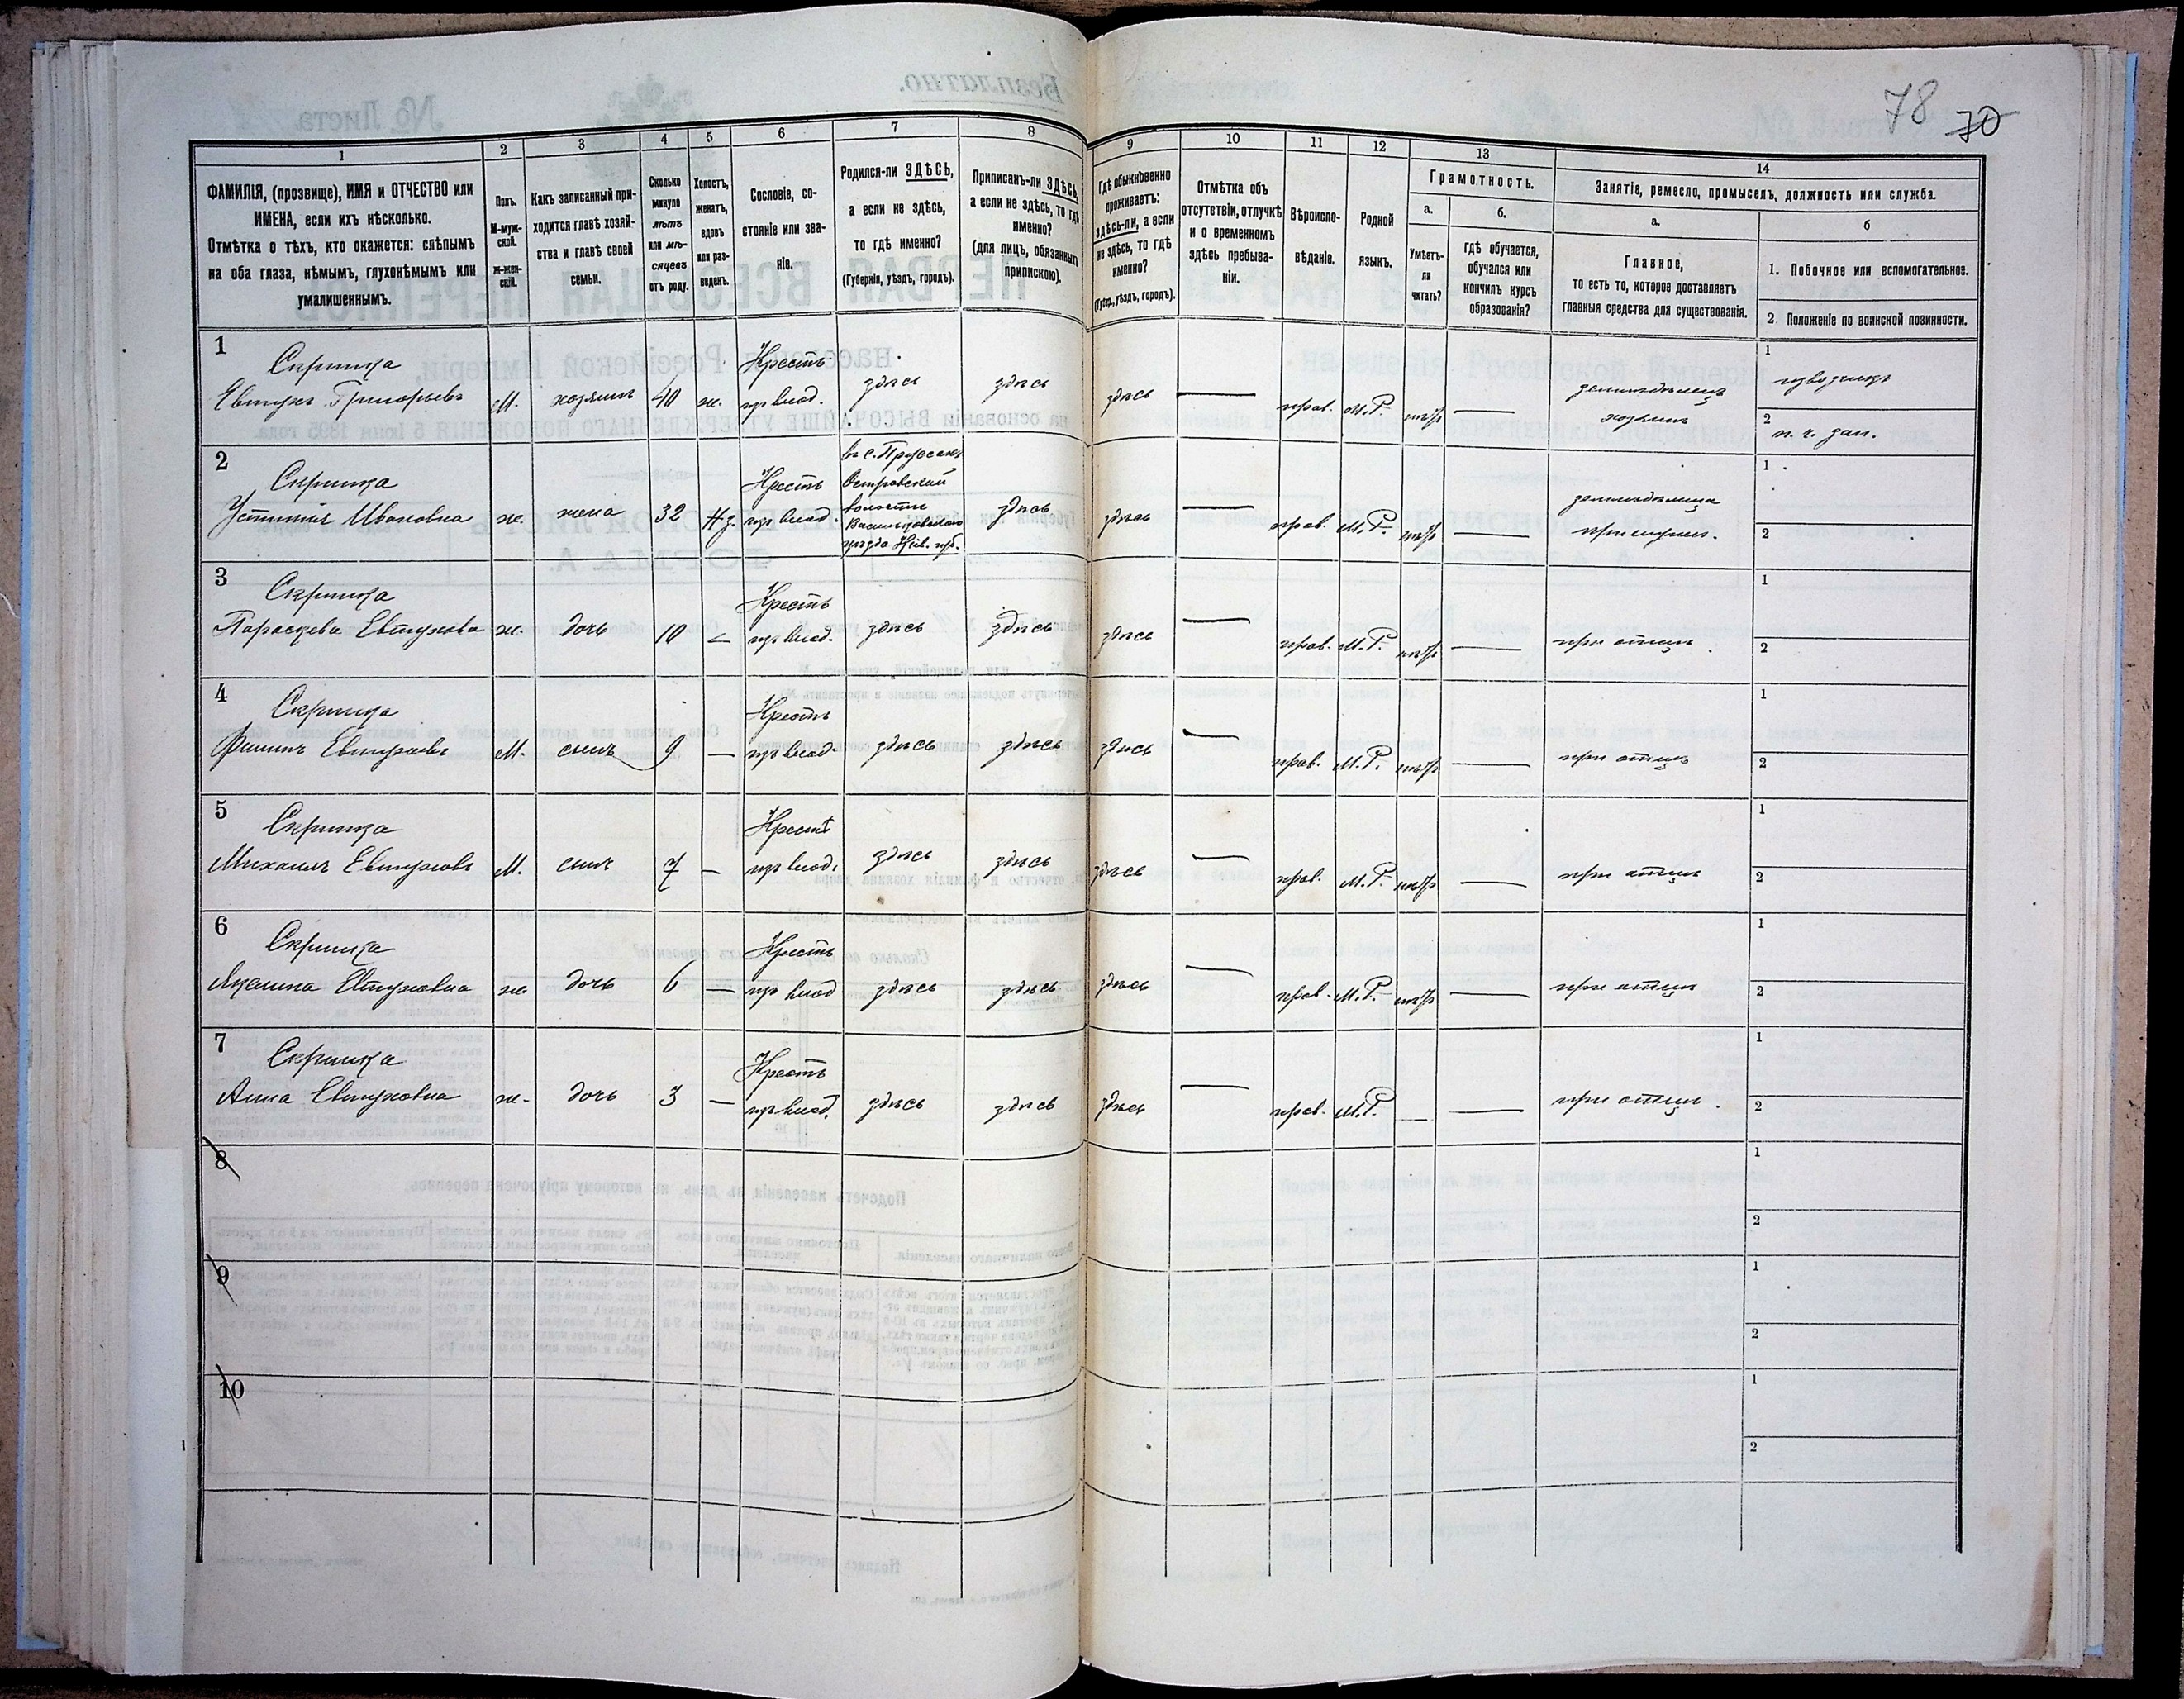 78 70
1 2 3 4 5 6 7 8 9 10 11 12 13 14
ФАМИЛІЯ, (прозвище), ИМЯ и ОТЧЕСТВО или
ИМЕНА, если ихъ нѣсколько.
Отмѣтка о тѣхъ, кто окажется: слѣпымъ
на оба глаза, нѣмымъ, глухонѣмымъ или
умалишеннымъ.
Полъ.
М-муж-
ской.
ж-жен-
скій.
Какъ записанный при-
ходится главѣ хозяй-
ства и главѣ своей
семьи.
Сколько
минуло
лѣтъ
или мѣ-
сяцевъ
отъ роду.
Холостъ,
женатъ,
вдовъ
или раз-
веденъ.
Сословіе, со-
стояніе или зва-
ніе.
Родился-ли ЗДѢСЬ,
а если не здѣсь,
то гдѣ именно?
(Губернія, уѣздъ, городъ).
Приписанъ-ли ЗДѢСЬ
а если не здѣсь, то гдѣ
именно?
(для лицъ, обязанныхъ
припискою).
Гдѣ обыкновенно
проживаетъ:
здѣсь-ли, а если
не здѣсь, то гдѣ
именно?
(Губер., уѣздъ, городъ).
Отмѣтка объ
отсутствіи, отлучкѣ
и о временномъ
здѣсь пребыва-
ніи.
Вѣроиспо-
вѣданіе.
Родной
языкъ.
Грамотность.
а.
Умѣетъ-
ли
читать?
б.
Гдѣ обучается,
обучался или
кончилъ курсъ
образованія?
Занятіе, ремесло, промыселъ, должность или служба.
а.
Главное,
то есть то, которое доставляетъ
главныя средства для существованія.
б
1. Побочное или вспомогательное.
2. Положеніе по воинской повинности.
1
Скрипка
Евтухъ Григорьевъ М. хозяинъ 40 ж.
Крестъ
здѣсь здѣсь здѣсь — прав. М.Р. —
хозяинъ
1
2
2
Скрипка
Устинія Ивановна ж. жена 32
Крестъ
Островской
волости
Васильковскаго
уѣзда Кіев. губ.
здѣсь здѣсь — прав. М.Р.
1
2
3
Скрипка
Параскева Евтухова ж. дочь 10 —
Крестъ
здѣсь здѣсь здѣсь — прав. М.Р. — при отцѣ
1
2
4
Скрипка
Филипъ Евтуховъ М. сынъ 9 —
Крестъ
здѣсь здѣсь здѣсь — прав. М.Р. — при отцѣ
1
2
5
Скрипка
Михаилъ Евтуховъ М. сынъ 7 —
Крестъ
здѣсь здѣсь здѣсь — прав. М.Р. — при отцѣ
1
2
6
Скрипка
Акелина Евтуховна ж. дочь 6 —
Крестъ
здѣсь здѣсь здѣсь — прав. М.Р. — при отцѣ
1
2
7
Скрипка
Анна Евтуховна ж. дочь 3 —
Крестъ
здѣсь здѣсь здѣсь — прав. М.Р. — — при отцѣ
1
2
8
1
2
9
1
2
10
1
2